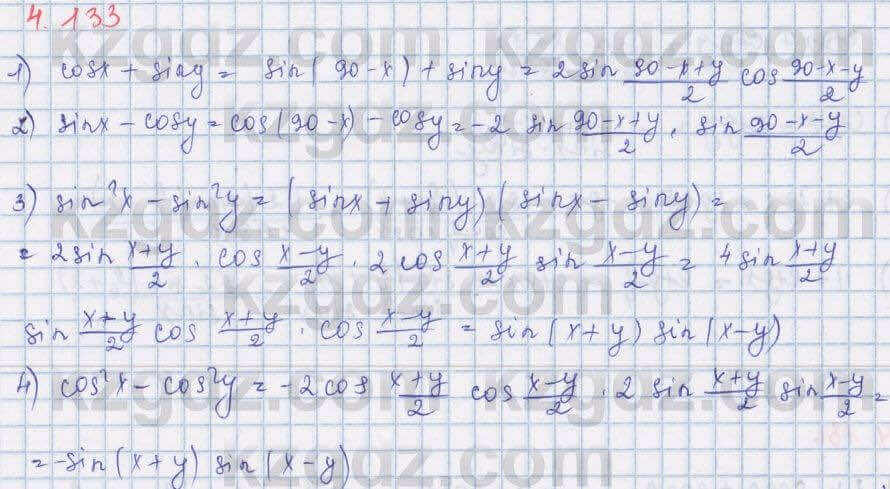 4.133
1) cosx + siny = sin(90-x) + siny = 2sin (90-x+y)/2 cos (90-x-y)/2
2) sinx - cosy = cos(90-x) - cosy = -2 sin (90-x+y)/2 · sin (90-x-y)/2
3) sin²x - sin²y = (sinx + siny)(sinx - siny) =
= 2sin (x+y)/2 · cos (x-y)/2 · 2cos (x+y)/2 sin (x-y)/2 = 4sin (x+y)/2
sin (x+y)/2 cos (x+y)/2 · cos (x-y)/2 = sin(x+y) sin(x-y)
4) cos²x - cos²y = -2cos (x+y)/2 cos (x-y)/2 · 2 sin (x+y)/2 sin (x-y)/2 =
= -sin(x+y) sin(x-y)
kzgdz.com
kzgdz.com
kzgdz.com
kzgdz.com
kzgdz.com
kzgdz.com